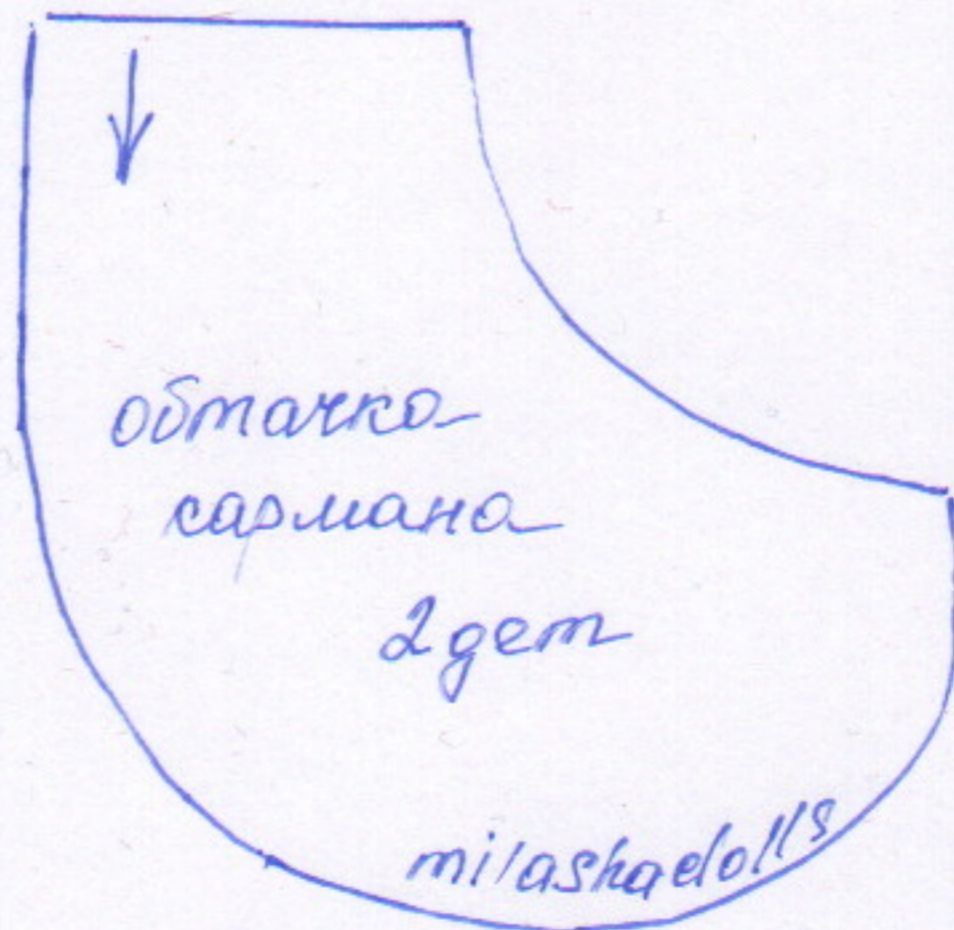 обтачка
кармана
2 дет
milashadolls